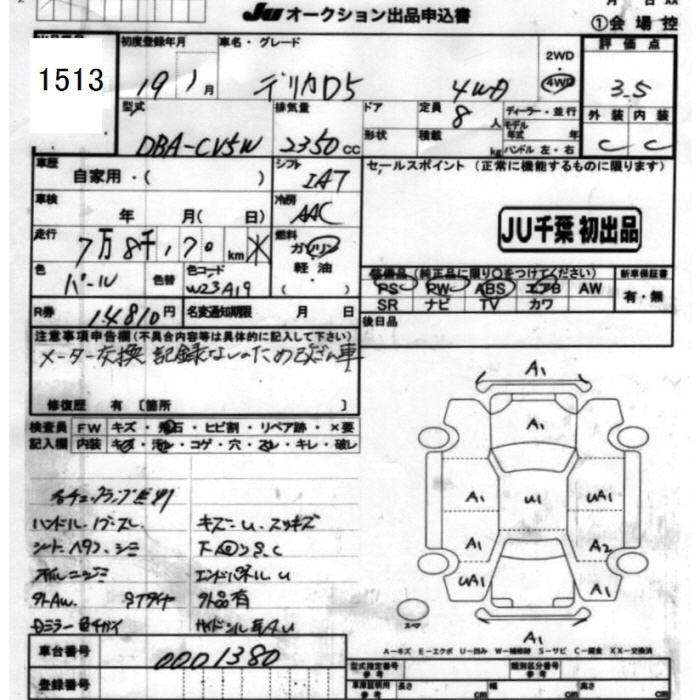 月 日
JU オークション出品申込書
①会場控
1513
初度登録年月
車名・グレード
2WD
・
4WD
評価点
19 1月
デリカD5 4WD
3.5
型式
排気量
ドア
定員
8人
ディーラー・並行
外装
内装
DBA-CV5W
2350cc
形状
積載
kg
モデル
年式
年
ハンドル 左・右
C
C
車歴
自家用・( )
シフト
IA7
セールスポイント (正常に機能するものに限ります)
車検
年 月( 日)
冷房
AAC
JU千葉 初出品
走行
7万8千170km
燃料
ガソリン
軽油
( )
色
パール
色替
色コード
W23A19
装備品(純正品に限り○をつけてください)
新車保証書
PS PW ABS エアB AW
SR ナビ TV カワ
有・無
R券
14810円
名変通知期限
月 日
後日品
注意事項申告欄(不具合内容等は具体的に記入して下さい)
メーター交換 記録なしのため改ざん車
修復歴 有 〔箇所 〕
検査員
記入欄
FW キズ・飛石・ヒビ割・リペア跡・×要
内装 キズ・汚れ・コゲ・穴・スレ・キレ・破レ
ハンドル・ノブスレ
キズー U・スッキズ
シート ヘタリ・シミ
オイルニジミ
エンドパネルU
外AW
外品有
Dミラー色チガイ
A1
A1
A1
U1
UA1
A1
A2
UA1
A1
A1
スペア
A-キズ E-エクボ U-凹み W-補修跡 S-サビ C-腐食 XX-交換済
車台番号
0001380
登録番号
型式指定番号
参考
類別区分番号
参考
車庫証明用
参考
長さ
cm
幅
cm
高さ
cm